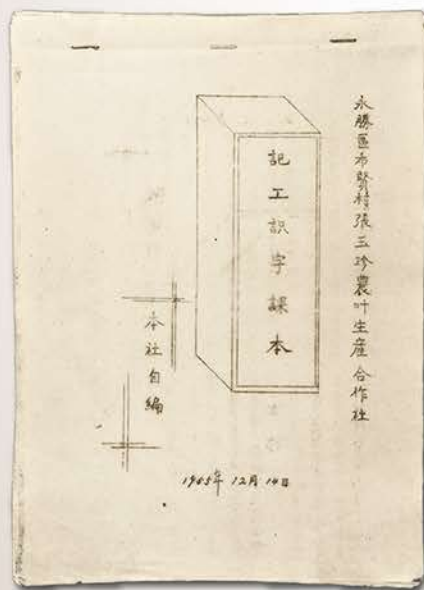 永勝區布賢村張玉珍農叶生產合作社
記工識字課本
本社自編
1955年12月14日